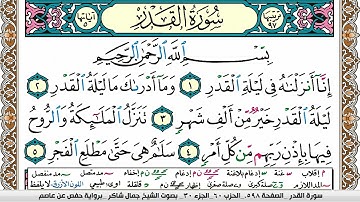 سُورَةُ الْقَدْرِ
ترتيبها ٩٧
آياتها ٥
بِسْمِ اللَّهِ الرَّحْمَٰنِ الرَّحِيمِ
إِنَّا أَنزَلْنَٰهُ فِي لَيْلَةِ الْقَدْرِ ١ وَمَا أَدْرَىٰكَ مَا لَيْلَةُ الْقَدْرِ ٢
لَيْلَةُ الْقَدْرِ خَيْرٌ مِّنْ أَلْفِ شَهْرٍ ٣ تَنَزَّلُ الْمَلَٰٓئِكَةُ وَالرُّوحُ
فِيهَا بِإِذْنِ رَبِّهِم مِّن كُلِّ أَمْرٍ ٤ سَلَٰمٌ هِيَ حَتَّىٰ مَطْلَعِ الْفَجْرِ ٥
سورة القدر الصفحة ٥٩٨ الحزب ٦٠ الجزء ٣٠ بصوت الشيخ جمال شاكر برواية حفص عن عاصم